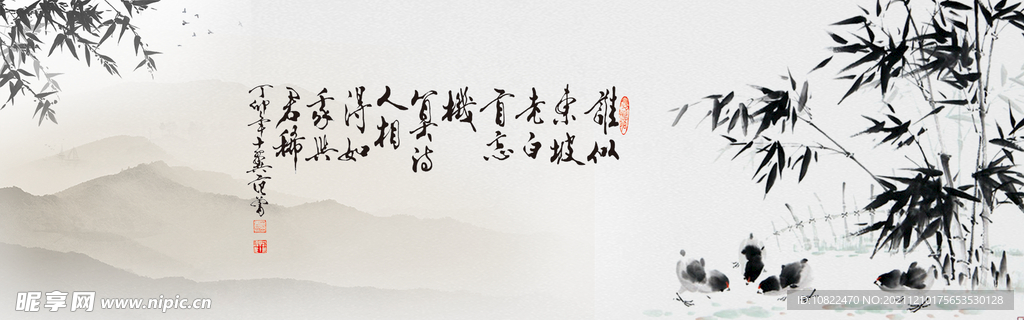 誰似
東坡
老白
首忘
機
算詩
人相
得如
我與
君稀
丁卯年十
昵享网 www.nipic.cn
ID:10822470 NO:20211210175653530128